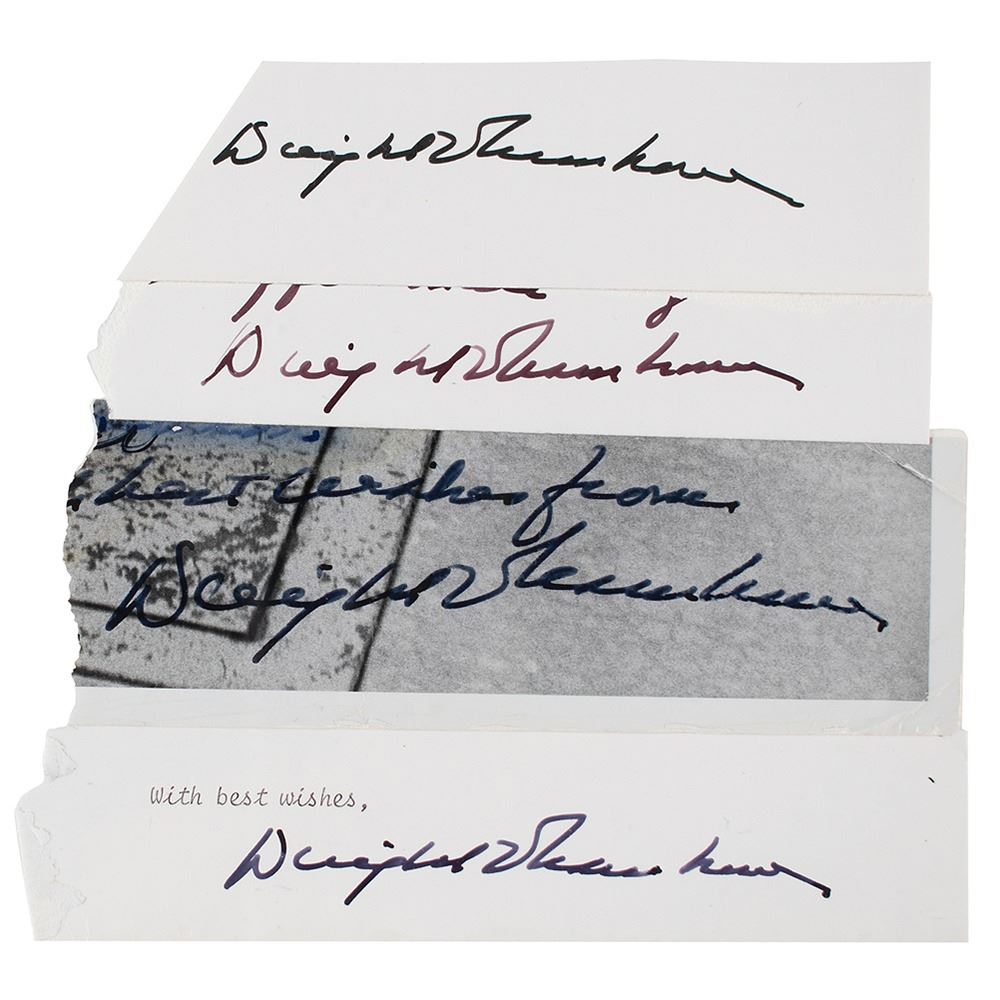 Dwight D Eisenhower
Dwight D Eisenhower
best wishes from
Dwight D Eisenhower
With best wishes,
Dwight D Eisenhower